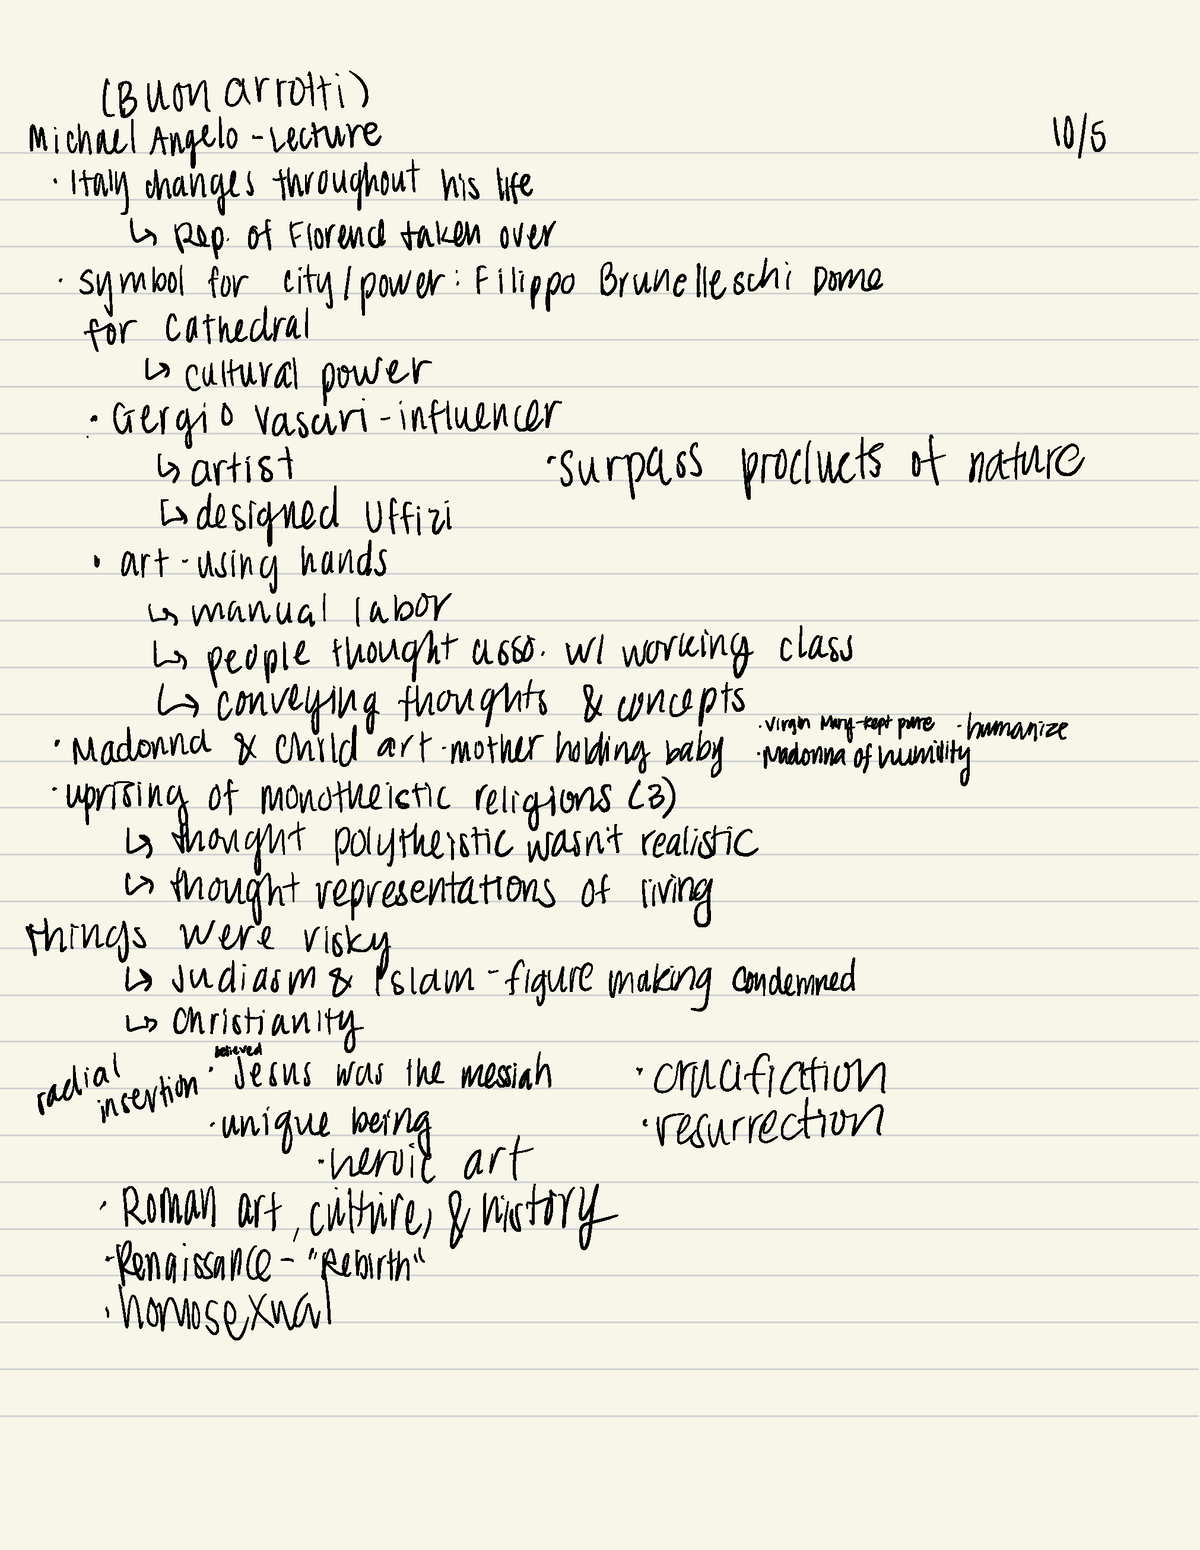 (Buonarrotti)
Michael Angelo - Lecture
10/5
· Italy changes throughout his life
↳ Rep. of Florence taken over
· symbol for city/power: Filippo Brunelleschi Dome
for Cathedral
↳ cultural power
· Gergio Vasari - influencer
↳ artist
· surpass products of nature
↳ designed Uffizi
· art - using hands
↳ manual labor
↳ people thought asso. w/ working class
↳ conveying thoughts & concepts
· Virgin Mary - kept pure · humanize
· Madonna & Child art - mother holding baby · Madonna of humility
· uprising of monotheistic religions (3)
↳ thought polytheistic wasn't realistic
↳ thought representations of living
things were risky
↳ Judiasm & Islam - figure making condemned
↳ Christianity
believed
radial insertion · Jesus was the messiah · crucifiction
· unique being · resurrection
· heroic art
· Roman art, culture, & history
· Renaissance - "Rebirth"
· homosexual